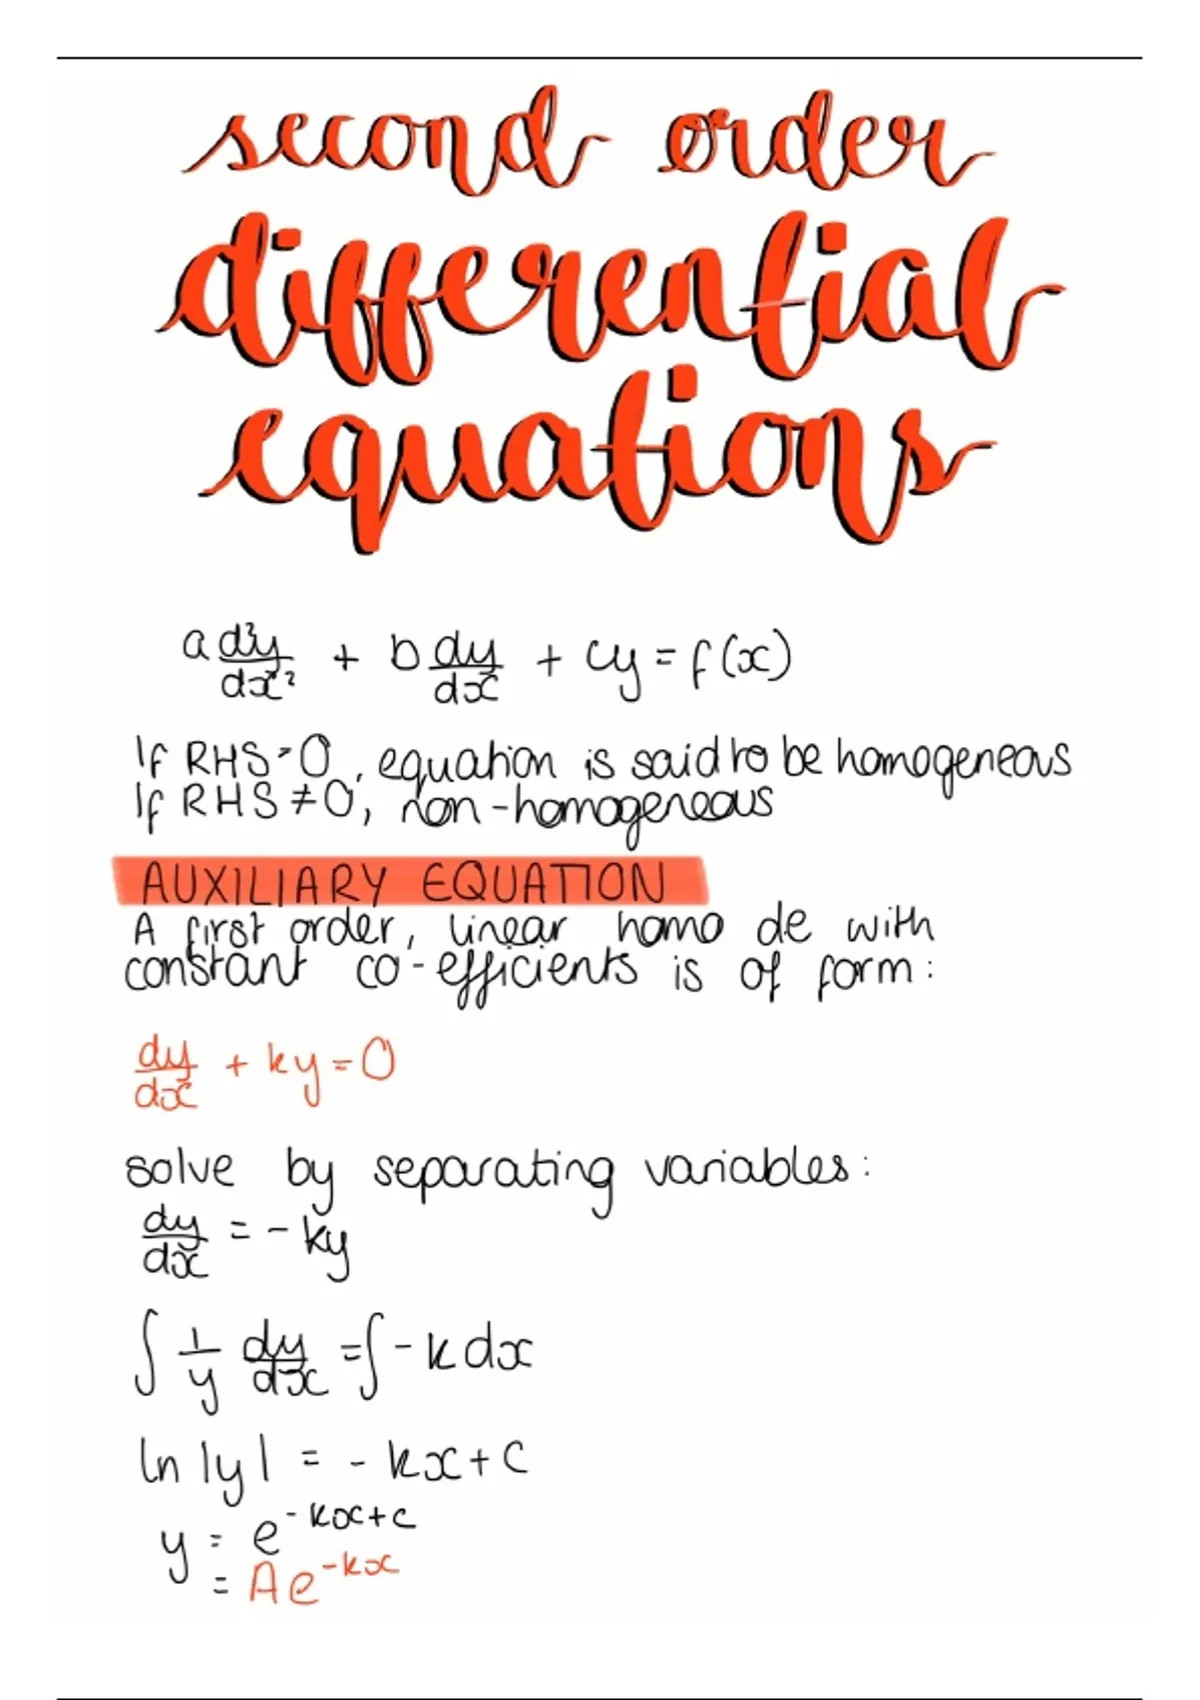 second order
differential
equations
a d²y/dx² + b dy/dx + cy = f(x)
If RHS = 0, equation is said to be homogeneous
If RHS ≠ 0, non-homogeneous
AUXILIARY EQUATION
A first order, linear homo de with
constant co-efficients is of form:
dy/dx + ky = 0
solve by separating variables:
dy/dx = - ky
∫ 1/y dy/dx = ∫ - k dx
ln |y| = - kx + c
y = e^(-kx+c)
= Ae^(-kx)